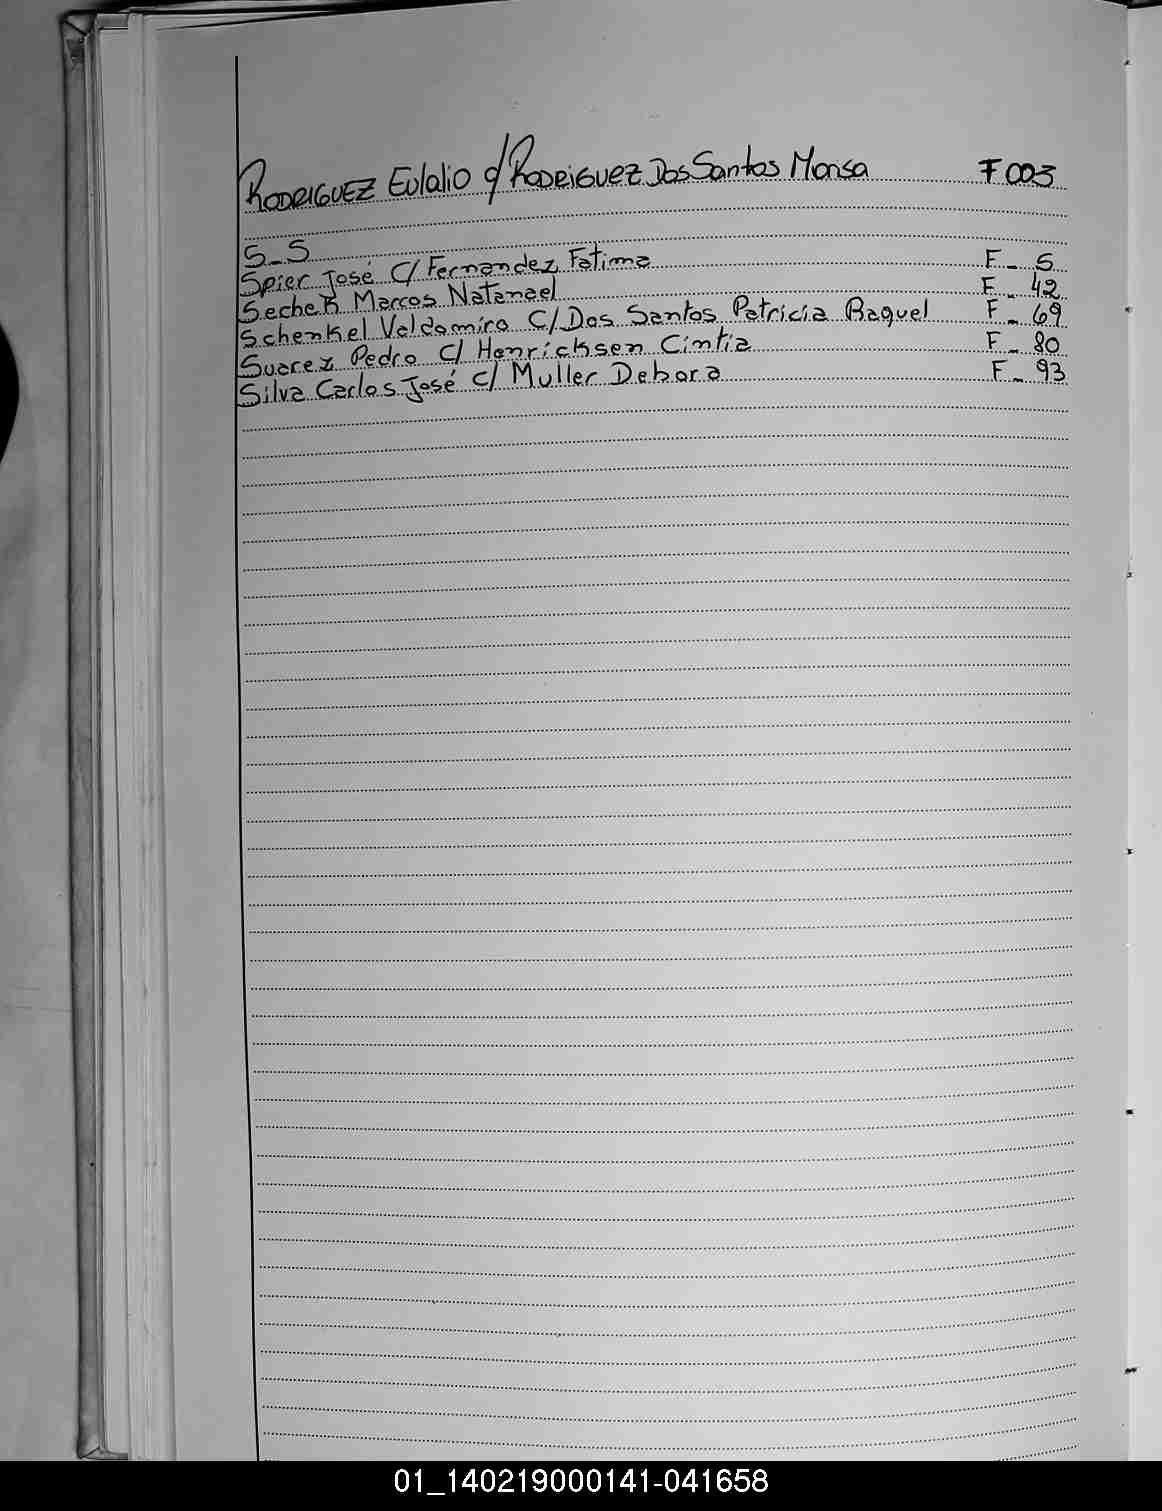 RODRIGUEZ Eulalio c/ RODRIGUEZ Dos Santos Monsa F 003
S_S
Spier José C/ Fernandez Fatima F_ 5
Marcos Natanael F_ 42
Schenkel Valdomiro C/ Dos Santos Patricia Raquel F_ 69
Suarez Pedro C/ Henricksen Cintia F_ 80
Silva Carlos José C/ Muller Debora F_ 93
01_140219000141-041658